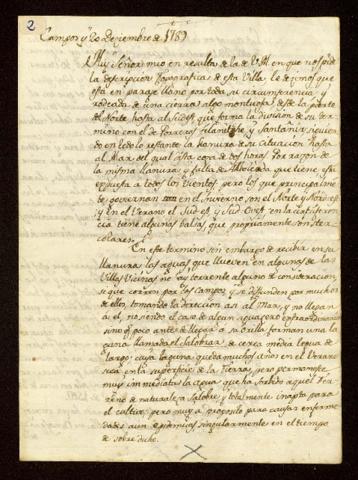 2
Campos y 20 Deziembre de 1789
Muy Señor mio en resulta de la de Vm. en que nos pide
la descripcion Topografica de esta Villa le decimos que
esta en parage llano por toda su circumferencia y
rodeada de una cierra algo montuosa desde la parte
del Norte hasta al Sudest que forma la division de su ter-
mino con el de Porreras Filanitx y Santañi, siguiendo
en todo lo restante la llanura de su situacion hasta
al Mar del qual dista cosa de dos horas. Por razon de
la misma llanura y falta de Arboleda que tiene esta
expuesta a todos los vientos pero los que principalmte
goviernan en el Inverno son el Norte y Nordest
y en el Verano el Sudest y Sud Ovest, en la circumferen-
cia tiene algunas balsas que propriamente son ster-
coleras.
En este termino sin embargo de recibir en su
llanura las aguas que llueven en algunas de las
Villas vicinas no hay torrente alguno de consideracion
si que corren por los Campos y se difunden por muchos
de ellos, tomando la direccion asi al Mar, y no llegan
a el, no siendo el caso de algun aguacero extraordinario
sino que poco antes de llegar a su orilla forman una la-
cuna llamada el Salobrar de cerca media legua de
largo cuya laguna queda muchos años en el Verano
seca en la superficie de la Tierra, pero permanece
muy inmediata la agua que ha sorbido aquel Ter-
reno de naturaleza Salobre y totalmente inapta para
el cultivo; pero muy a proposito para causar enferme-
dades aun epidemicas singularmente en el tiempo
de sobre dicho.